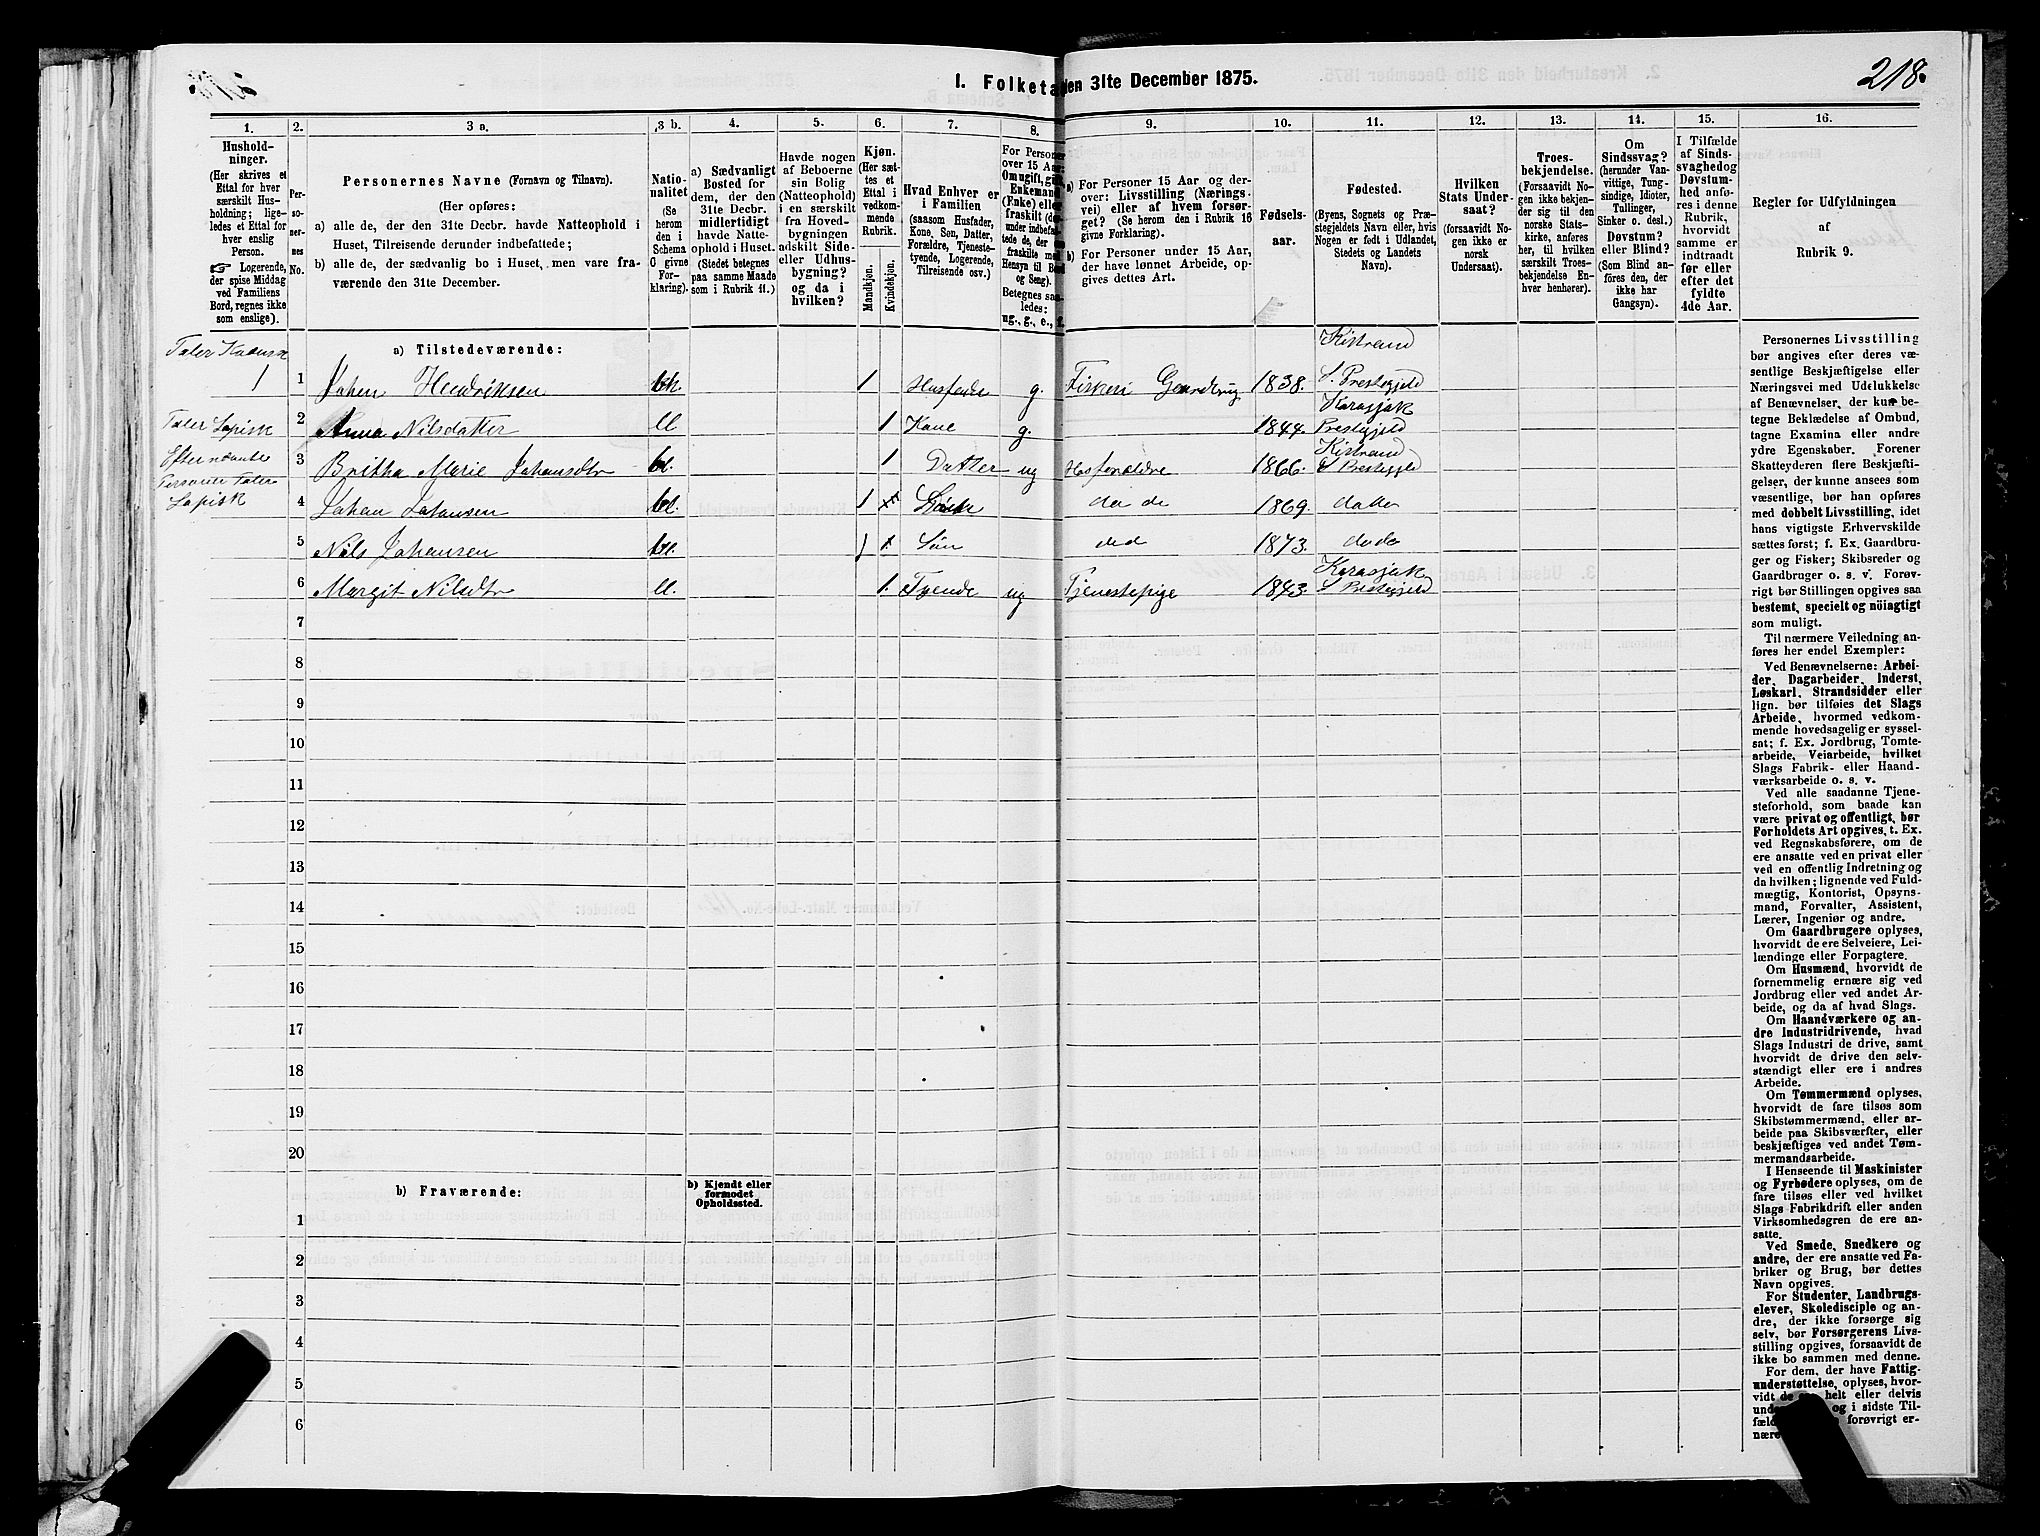 I. Folketæ den 31te December 1875.
218.
1.
2.
3 a.
3 b.
4.
5.
6.
7.
8.
9.
10.
11.
12.
13.
14.
15.
16.
Hushold-
ninger.
(Her skrives et
Ettal for hver
særskilt Hus-
holdning; lige-
ledes et Ettal for
hver enslig
Person.
☞ Logerende,
der spise Middag
ved Familiens
Bord, regnes ikke
som enslige).
Per-
so-
ner-
nes
No.
Personernes Navne (Fornavn og Tilnavn).
(Her opføres:
a) alle de, der den 31te Decbr. havde Natteophold i
Huset, Tilreisende derunder indbefattede;
b) alle de, der sædvanlig bo i Huset, men vare fra-
værende den 31te December.
Natio-
nalitet
(Se
herom
den i
Schema
C givne
For-
klaring).
a) Sædvanligt
Bosted for
dem, der den
31te Decbr.
midlertidigt
havde Natte-
ophold i Huset.
(Stedet betegnes
paa samme Maade
som i Rubrik 11.)
Havde nogen
af Beboerne
sin Bolig
(Natteophold)
i en særskilt
fra Hoved-
bygningen
adskilt Side-
eller Udhus-
bygning?
og da i
hvilken?
Kjøn.
(Her sæt-
tes et
Ettal i
vedkom-
mende
Rubrik.
Mandkjøn.
Kvindekjøn.
Hvad Enhver er
i Familien
(saasom Husfader,
Kone, Søn, Datter,
Forældre, Tjeneste-
tyende, Logerende,
Tilreisende osv.)
For Personer
over 15 Aar:
Om ugift, gift,
Enkemand
(Enke) eller
fraskilt (der-
under indbefat-
tede de, der ere
fraskilte med
Hensyn til Bord
og Seng).
Betegnes saa-
ledes:
ug., g., e., f.
a) For Personer 15 Aar og der-
over: Livsstilling (Nærings-
vei) eller af hvem forsør-
get? (Se herom den i Rubrik 16
givne Forklaring).
b) For Personer under 15 Aar,
der have lønnet Arbeide, op-
gives dettes Art.
Fødsels-
aar.
Fødested.
(Byens, Sognets og Præ-
stegjeldets Navn eller, hvis
Nogen er født i Udlandet,
Stedets og Landets
Navn).
Hvilken
Stats Under-
saat?
(forsaavidt No-
gen ikke er
norsk
Undersaat).
Troes-
bekjendelse.
(Forsaavidt No-
gen ikke bekjen-
der sig til den
norske Stats-
kirke, anføres
her, til hvilken
særskilt Troes-
bekjendelse En-
hver henhører).
Om
Sindssvag?
(herunder Van-
vittige, Tung-
sindige, Idioter,
Tullinger,
Sinker o. desl.)
Døvstum?
eller Blind?
(Som Blind an-
føres den, der
ikke har
Gangsyn).
I Tilfælde
af Sinds-
svaghed og
Døvstum-
hed anfø-
res i denne
Rubrik,
hvorvidt
samme er
indtraadt
før eller
efter det
fyldte
4de Aar.
Regler for Udfyldningen
af
Rubrik 9.
a) Tilstedeværende:
Taler Kvænsk
1
1 Johan Hendriksen
1
Husfader
g.
Fiskeri Gaardbrug
1838.
Kistrand
S. Prestegjeld
Taler Lapisk
2 Anna Nilsdatter
ll
1
Kone
g.
1844.
Karasjok
Prestegjeld
Efter nævnte
Personer Taler
Lapisk
3 Britha Marie Johansdtr
bl.
1
Datter
ug
Husforældre
1866.
Kistrand
S Prestegjeld
4 Johan Johansen
bl.
1
do do
1869.
5 Nils Johansen
bl.
1
Søn
do d
1873.
do do
6 Margit Nilsdtr
ll.
1.
Tyende
ug
Tjenestepige
1843.
Karasjok
S Prestegjeld
7
8
9
10
11
12
13
14
15
16
17
18
19
20
b) Fraværende:
b) Kjendt eller
formodet
Opholdssted.
1
2
3
4
5
6
Personernes Livsstilling
bør angives efter deres væ-
sentlige Beskjæftigelse eller
Næringsvei med Udelukkelse
af Benævnelser, der kun be-
tegne Beklædelse af Ombud,
tagne Examina eller andre
ydre Egenskaber. Forener
Skatteyderen flere Beskjæfti-
gelser, der kunne ansees som
væsentlige, bør han opføres
med dobbelt Livsstilling, idet
hans vigtigste Erhvervskilde
sættes først; f. Ex. Gaardbru-
ger og Fisker; Skibsreder og
Gaardbruger o. s. v. Forøv-
rigt bør Stillingen opgives saa
bestemt, specielt og nöiagtigt
som muligt.
Til nærmere Veiledning an-
føres her endel Exempler:
Ved Benævnelserne: Arbei-
der, Dagarbeider, Inderst,
Løskarl, Strandsidder eller
lign. bør tilføies det Slags
Arbeide, hvormed vedkom-
mende hovedsagelig er syssel-
sat; f. Ex. Jordbrug, Tomte-
arbeide, Veiarbeide, hvilket
Slags Fabrik- eller Haand-
værksarbeide o. s. v.
Ved alle saadanne Tjene-
steforhold, som baade kan
være privat og offentligt, bør
Forholdets Art opgives, t. Ex.
ved Regnskabsførere, om de
ere ansatte ved en privat eller
ved en offentlig Indretning og
da hvilken; lignende ved Fuld-
mægtig, Kontorist, Opsyns-
mand, Forvalter, Assistent,
Lærer, Ingeniør og andre.
Om Gaardbrugere oplyses,
hvorvidt de ere Selveiere, Lei-
lændinge eller Forpagtere.
Om Husmænd, hvorvidt de
fornemmelig ernære sig ved
Jordbrug eller ved andet Ar-
beide, og da af hvad Slags.
Om Haandværkere og an-
dre Industridrivende, hvad
Slags Industri de drive, samt
hvorvidt de drive den selv-
stændigt eller ere i andres
Arbeide.
Om Tømmermænd oplyses,
hvorvidt de fare tilsøs som
Skibstømmermænd, eller ar-
beide paa Skibsværfter, eller
beskjæftiges ved andet Tøm-
mermandsarbeide.
I Henseende til Maskinister
og Fyrbødere oplyses, om de
fare tilsøs eller ved hvilket
Slags Fabrikdrift eller anden
Virksomhedsgren de ere an-
satte.
Ved Smede, Snedkere og
andre, der ere ansatte ved Fa-
briker og Brug, bør dettes
Navn opgives.
For Studenter, Landbrugs-
elever, Skoledisciple og an-
dre, der ikke forsørge sig
selv, bør Forsørgerens Livs-
stilling opgives, forsaavidt de
ikke bo sammen med denne.
For dem, der have Fattig-
understøttelse, oplyses, hvor-
vidt de helt eller delvis
og i sidste Til-
forøvrigt er-
nære